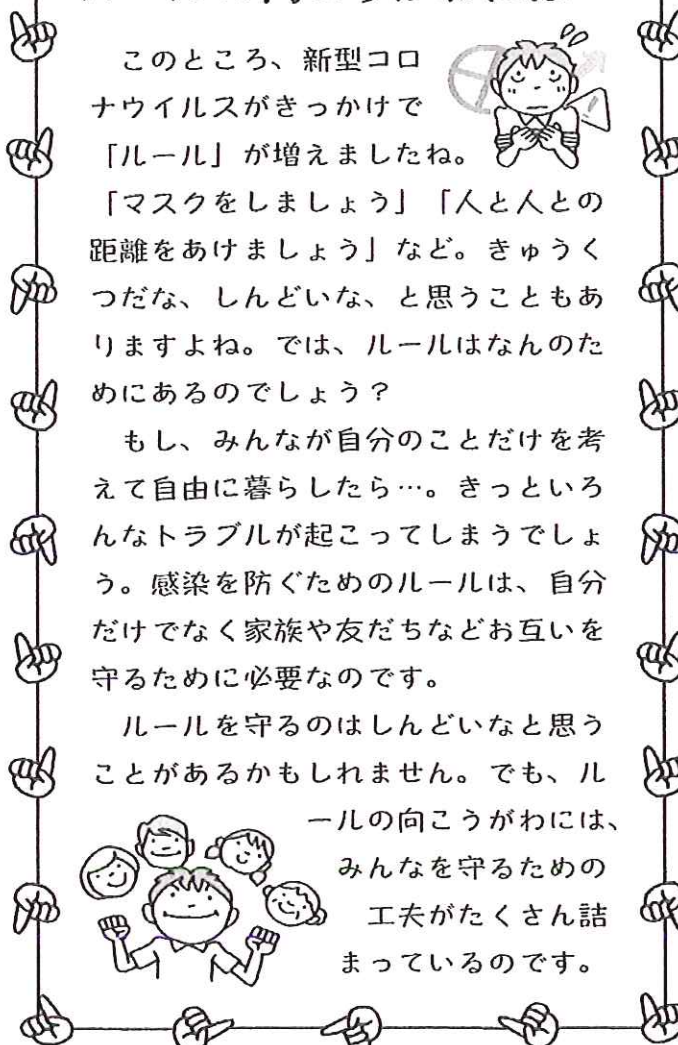 このところ、新型コロ
ナウイルスがきっかけで
「ルール」が増えましたね。
「マスクをしましょう」「人と人との
距離をあけましょう」など。きゅうく
つだな、しんどいな、と思うこともあ
りますよね。では、ルールはなんのた
めにあるのでしょう？
もし、みんなが自分のことだけを考
えて自由に暮らしたら…。きっといろ
んなトラブルが起こってしまうでしょ
う。感染を防ぐためのルールは、自分
だけでなく家族や友だちなどお互いを
守るために必要なのです。
ルールを守るのはしんどいなと思う
ことがあるかもしれません。でも、ル
ールの向こうがわには、
みんなを守るための
工夫がたくさん詰
まっているのです。